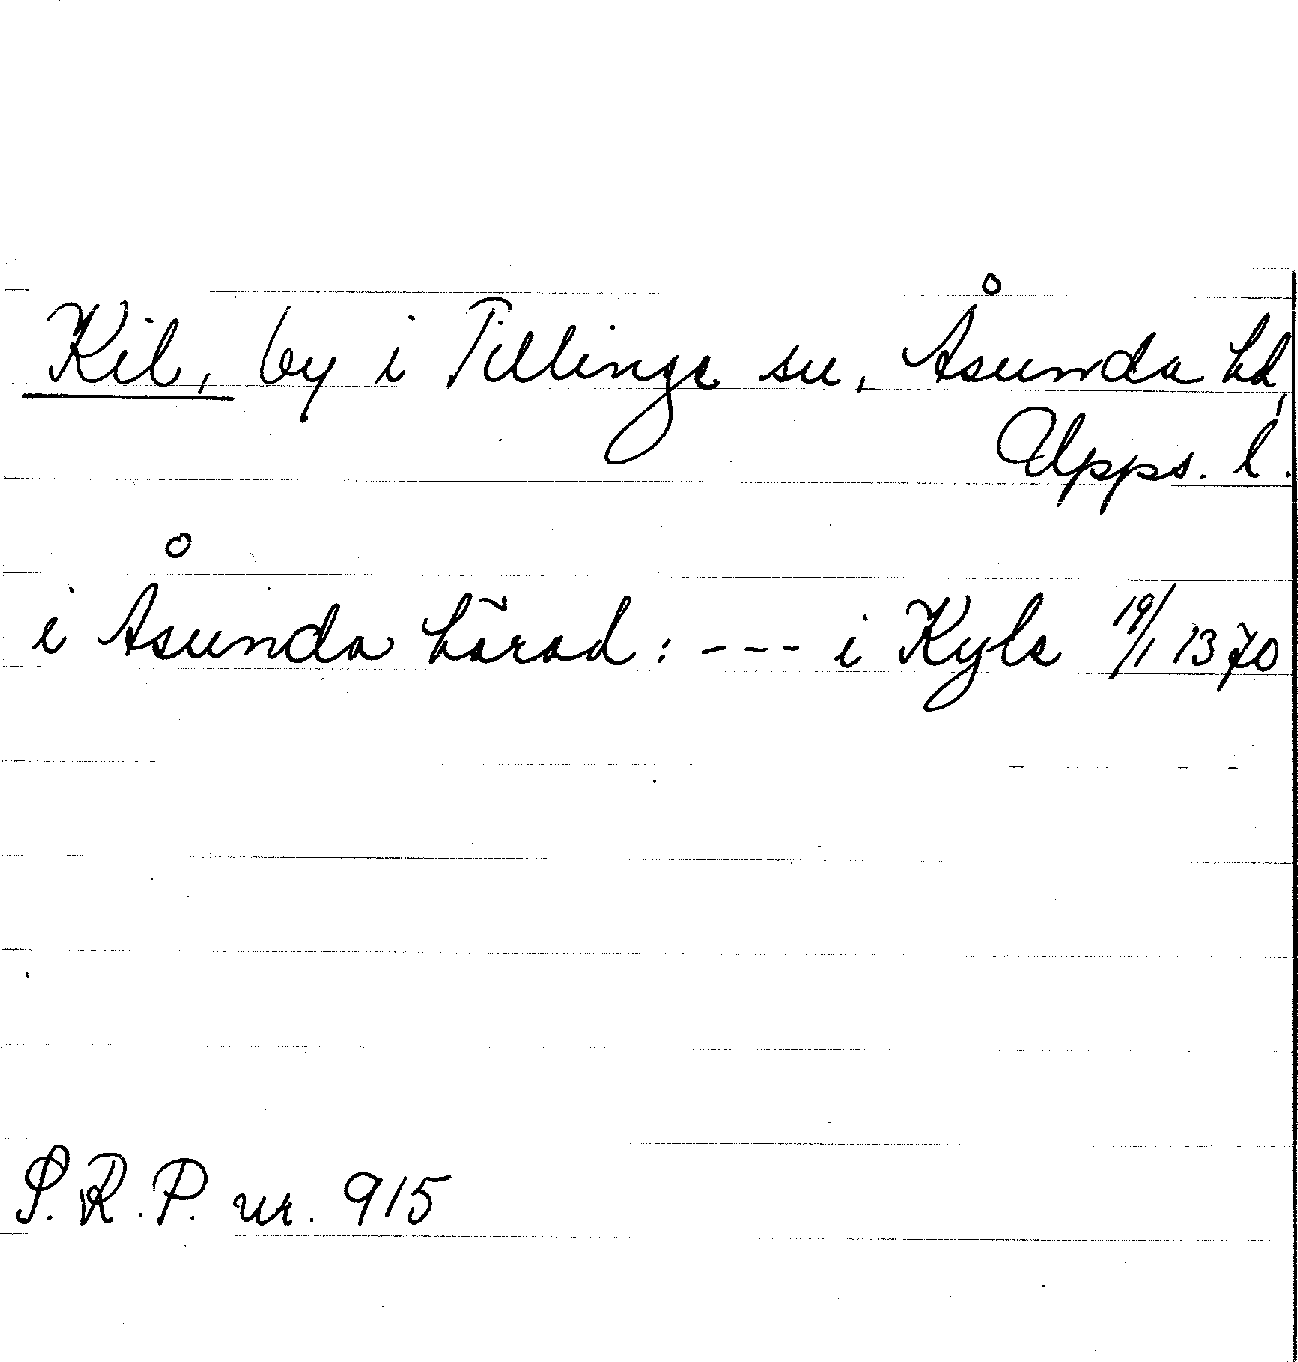 Kil, by i Tillinge sn, Åsunda hd,
Upps. l.
i Åsunda härad: --- i Kyle 19/1 1370
S.R.P. nr. 915